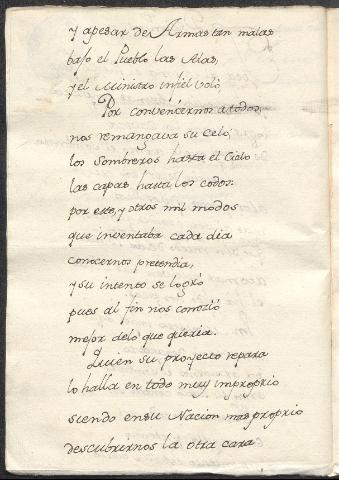 y apesar de Armas tan malas
bajo el Pueblo las Alas,
y el Ministro infiel voló,
Por convencernos atodos,
nos remangava su Celo,
los Sombreros hasta el Cielo
las capas hasta los codos:
por esto, y otros mil modos
que inventaba cada dia
conocernos pretendia,
y su intento se logró
pues al fin nos conozió
mejor delo que queria.
Quien su proyecto repara
lo halla en todo muy impropio
siendo ensu Nacion mas proprio
descubrirnos la otra cara